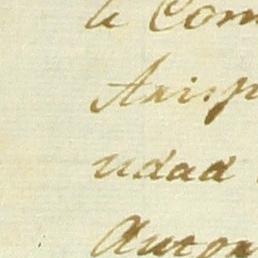 le Com
Arisp
udad
Anton